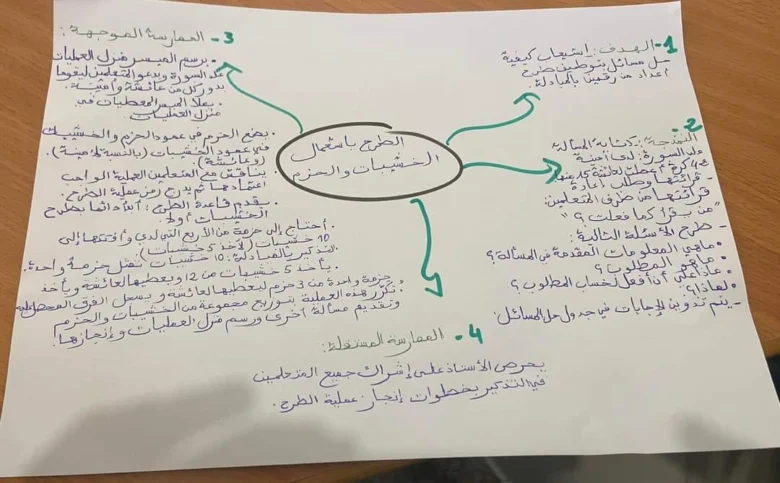 الطرح باستعمال
الخشيبات والحزم
1- الهدف: استيعاب كيفية
حل مسائل بتوظيف طرح
أعداد من رقمين بالمبادلة.
2-
النمذجة: كتابة المسألة
على السبورة: لدى أمينة
42 كرة أعطت لعائشة
- قراءتها وطلب إعادة
قراءتها من طرف المتعلمين:
"من يقرأ كما فعلت؟"
- طرح الأسئلة التالية:
• ماهي المعلومات المقدمة في المسألة؟
• ماهو المطلوب؟
• ماذا علي أن أفعل لحساب المطلوب؟
• لماذا؟
- يتم تدوين الإجابات في جدول حل المسائل.
3- الممارسة الموجهة:
• يرسم الميسر منزل العمليات
على السبورة ويدعو المتعلمين ليقوما
بدور كل من عائشة وأمينة.
• يملأ الميسر المعطيات في
منزل العمليات.
• يضع الحزم في عمود الحزم والخشيبات
في عمود الخشيبات (بالنسبة لأمينة)
(وعائشة).
- يناقش مع المتعلمين العملية الواجب
اعتمادها ثم يدرج رمز عملية الطرح.
- يقدم قاعدة الطرح: أبدأ دائما بطرح
الخشيبات أولا.
• أحتاج إلى حزمة من الأربع التي لدي وأفككها إلى
10 خشيبات (لآخذ 5 خشيبات)
• التذكير بالمبادلة: 10 خشيبات تمثل حزمة واحدة.
• يأخذ 5 خشيبات من 12 ويعطيها لعائشة ويأخذ
حزمة واحدة من 3 حزم ليعطيها لعائشة ويسجل الفرق المحصل عليه
• تكرر هذه العملية بتوزيع مجموعة من الخشيبات والحزم
وتقديم مسألة أخرى ورسم منزل العمليات وإنجازها.
4- الممارسة المستقلة:
يحرص الأستاذ على إشراك جميع المتعلمين
في التذكير بخطوات إنجاز عملية الطرح.